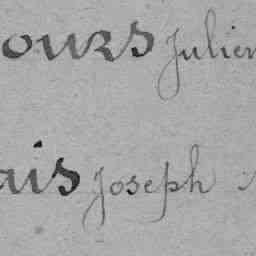 ours Julien
ais Joseph